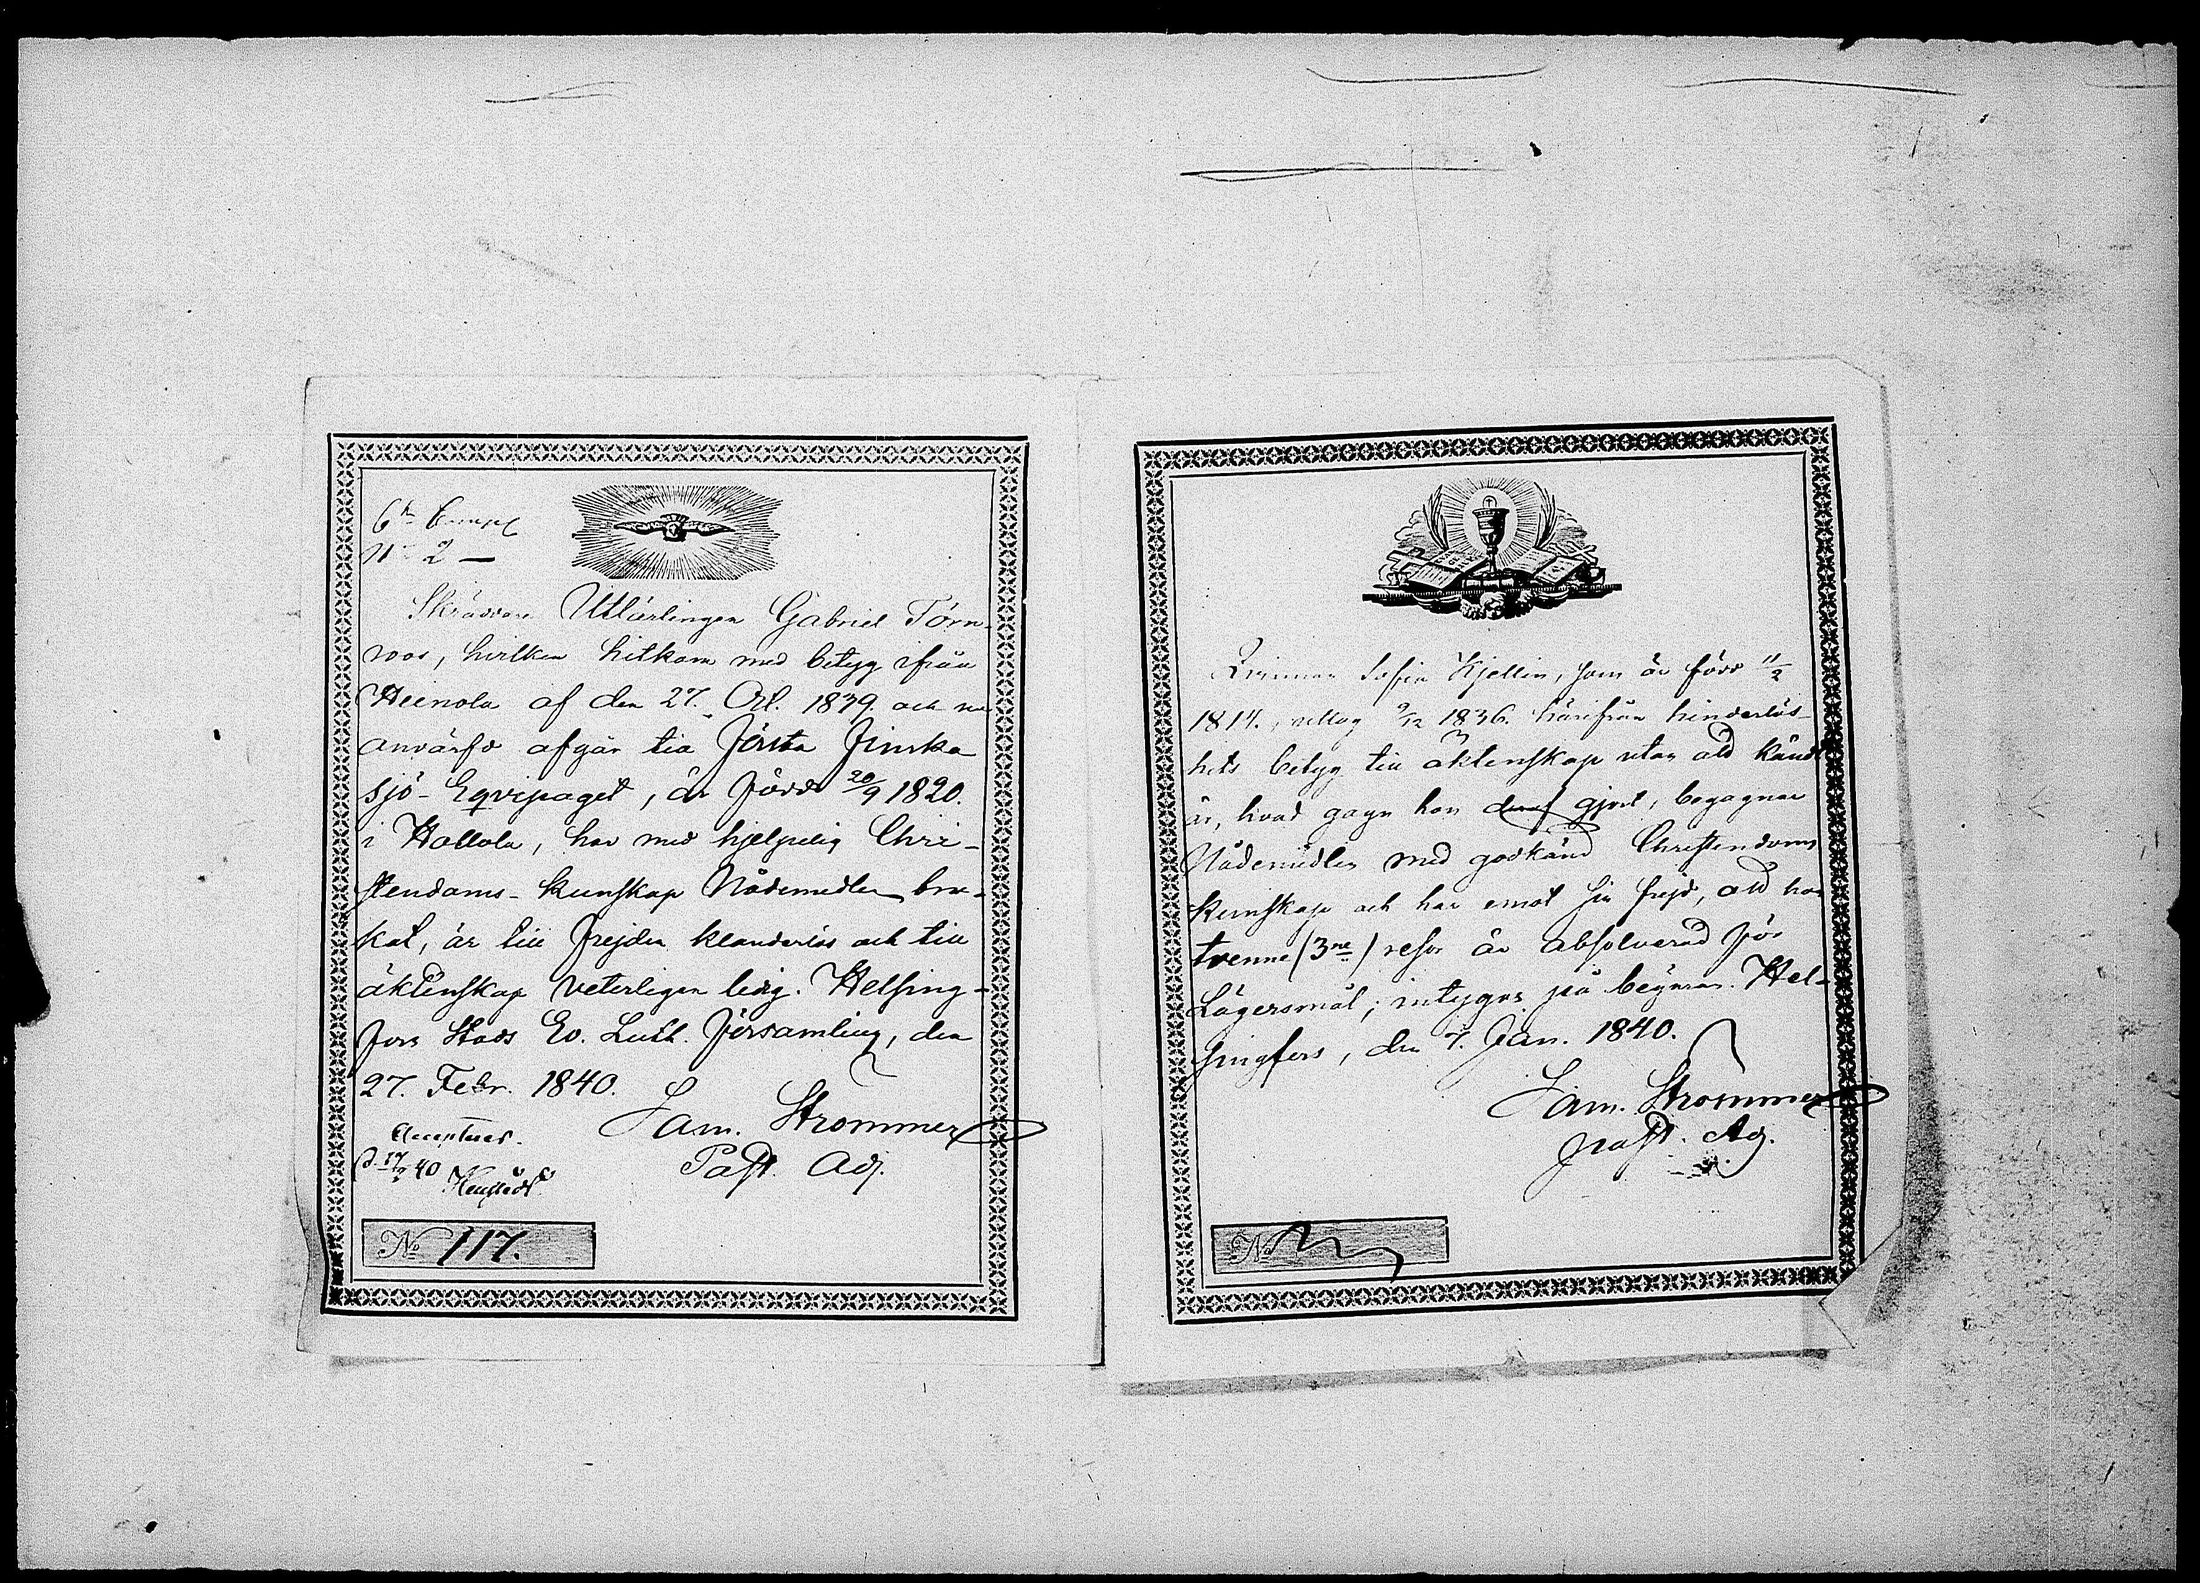 6te Comp
No 2 —
Skräddare Utlärlingen Gabriel Törn-
roos, hvilken hitkom med betyg ifrån
Heinola af den 27. Oct. 1839. och nu
anvärfd afgår till Första Finska
Sjö-Eqvipaget, är född 20/9 1820.
i Hollola, har med hjelpelig Chri-
stendoms-kunskap Nådemedlen bru-
kat, är till frejden klanderlös och till
äktenskap veterligen ledig. Helsing-
fors Stads Ev. Luth. Församling, den
27. Febr. 1840.
Sam. Strommer
Past. Adj.
Accepteras.
d. 17/ 40
No 117.
Sofia Kjellin, som är född 11/2
1817., uttog 9/12 1836. härifrån hinderlös-
hets betyg till äktenskap utan att kändt
är, hvad gagn hon deraf gjort, begagnar
Nådemedlen med godkänd Christendoms
kunskap och har emot sin frejd, att hon
trenne (3ne) resor är absolverad för
Lägersmål; intygas på begäran. Hel-
singfors, den 7. Jan. 1840.
Sam. Strommer
past. Adj.
No